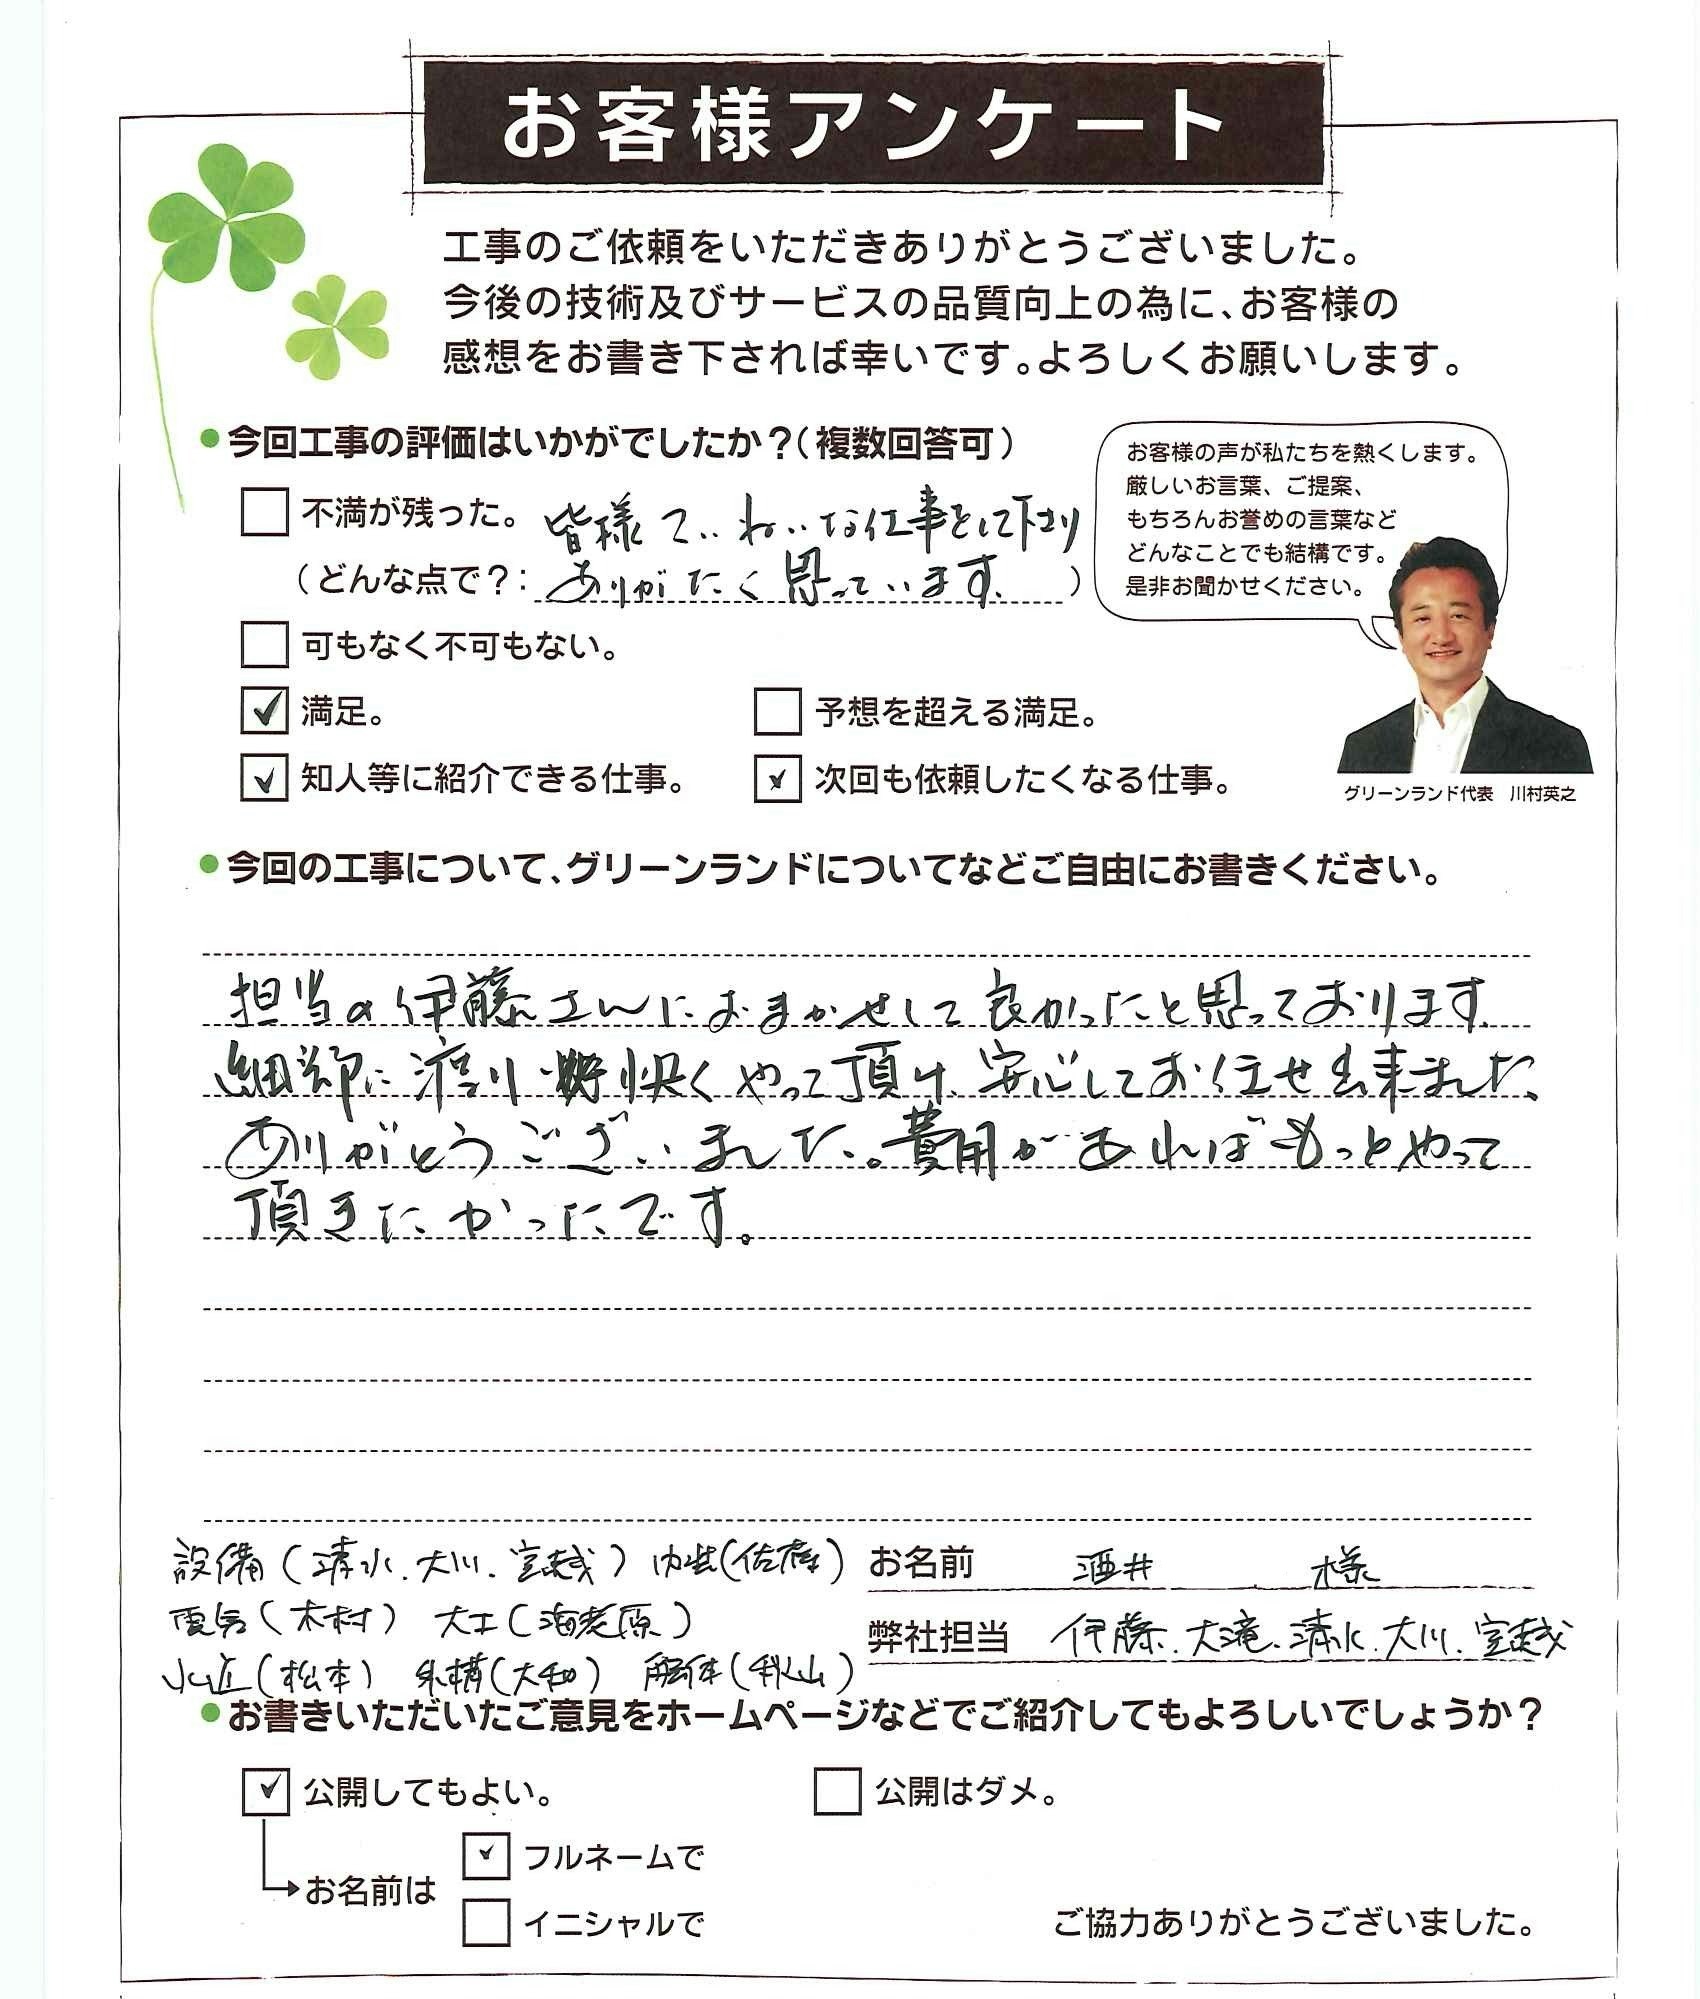 お客様アンケート
工事のご依頼をいただきありがとうございました。
今後の技術及びサービスの品質向上の為に、お客様の
感想をお書き下されば幸いです。よろしくお願いします。
今回工事の評価はいかがでしたか？（複数回答可）
お客様の声が私たちを熱くします。
厳しいお言葉、ご提案、
もちろんお誉めの言葉など
どんなことでも結構です。
是非お聞かせください。
グリーンランド代表　川村英之
不満が残った。 皆様ていねいな仕事をして下さり
（どんな点で？： ありがたく思っています。）
可もなく不可もない。
満足。
予想を超える満足。
知人等に紹介できる仕事。
次回も依頼したくなる仕事。
今回の工事について、グリーンランドについてなどご自由にお書きください。
担当の伊藤さんにおまかせして良かったと思っております。
細部に渡り快くやって頂け、安心してお任せ出来ました。
ありがとうございました。費用があればもっとやって
頂きたかったです。
設備（清水．大川．宮越）内装（佐藤）
電気（木村）　大工（海老原）
水道（松本）　外構（大和）　解体（秋山）
お名前　酒井　様
弊社担当　伊藤．大滝．清水．大川．宮越
お書きいただいたご意見をホームページなどでご紹介してもよろしいでしょうか？
公開してもよい。
公開はダメ。
お名前は
フルネームで
イニシャルで
ご協力ありがとうございました。